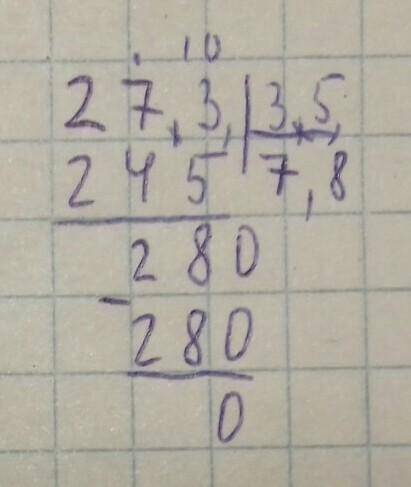 10
27,3, | 3,5,
245 | 7,8
280
- 280
0